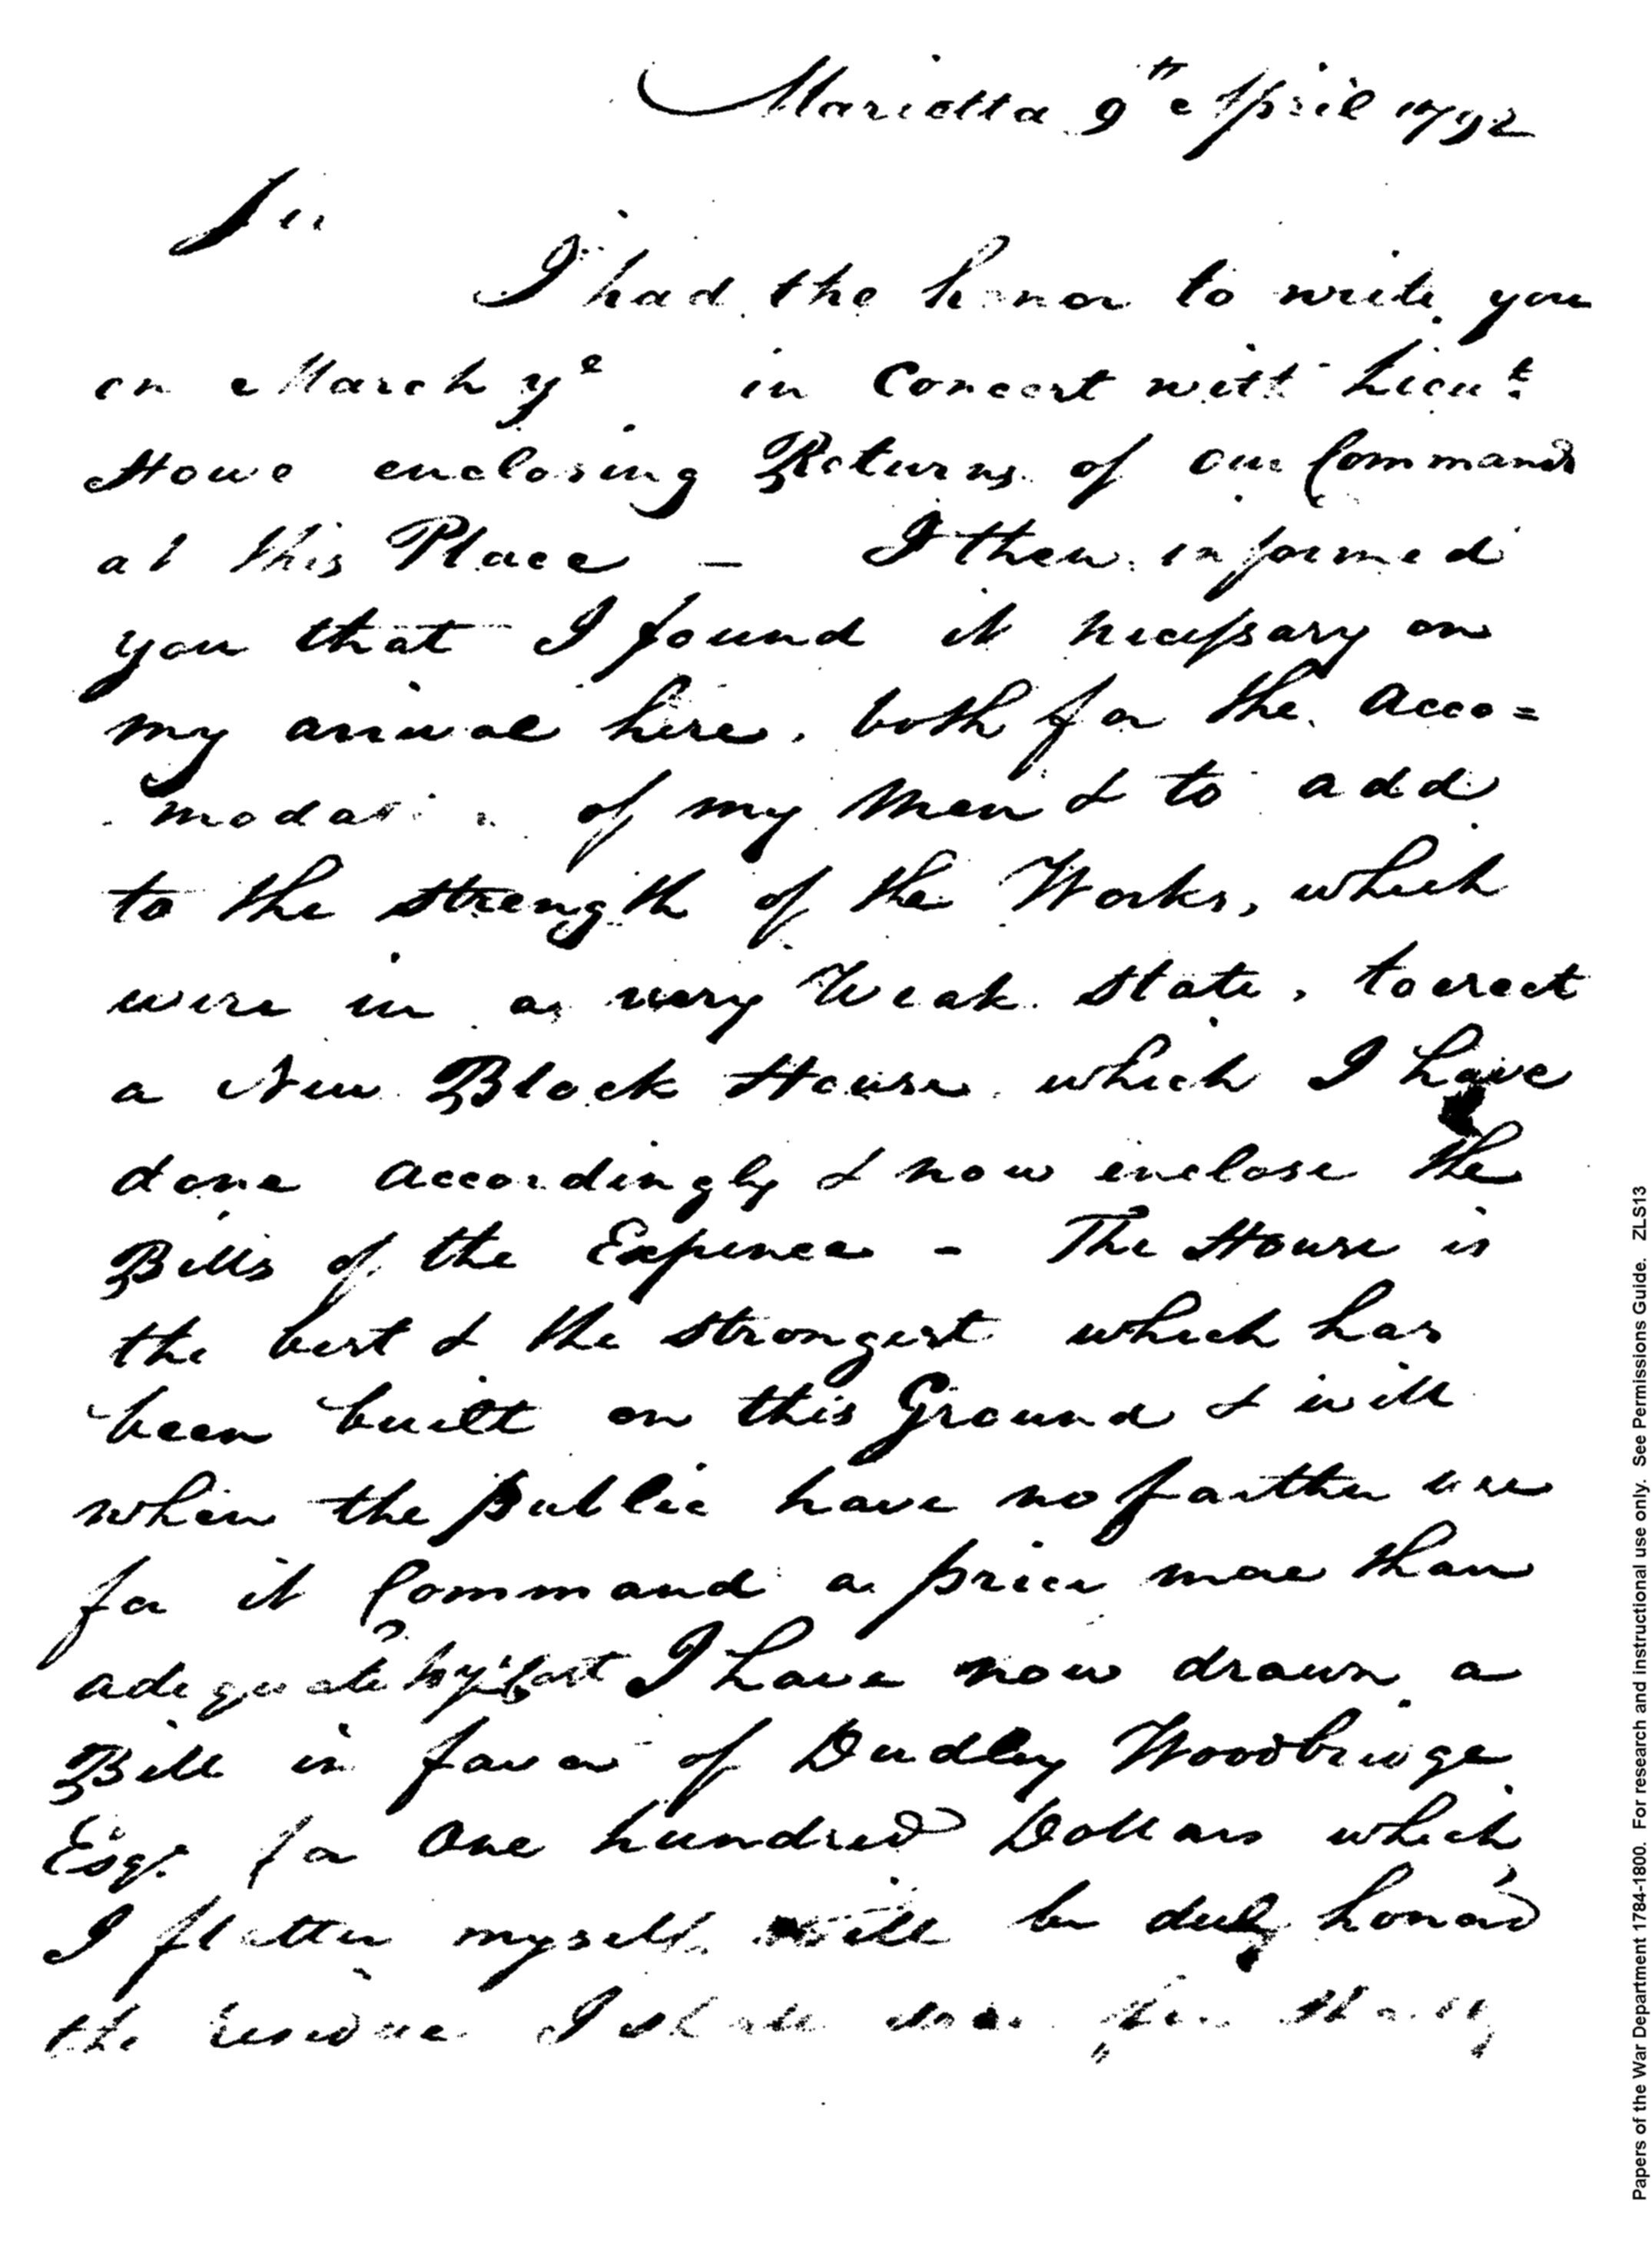 Marietta 9th April 1792
Sir
I had the honor to write you
on March ye in Concert with Lieut
Howe enclosing Returns of our Commands
at this Place – I then informed
you that I found it necessary on
my arrival here, both for the Acco=
modation of my Men & to add
to the strength of the Works, which
were in a very Weak State, to erect
a New Block House which I have
done accordingly & now enclose the
Bills of the Expence – The House is
the best & the strongest which has
been built on this Ground & will
when the public have no farther use
for it Command a price more than
adequate Cost I have now drawn a
Bill in favor of Dudley Woodbridge
Esqr for One hundred Dollars which
I flatter myself will be duly honor'd
the residue I shall
Papers of the War Department 1784-1800. For research and instructional use only. See Permissions Guide. ZLS13